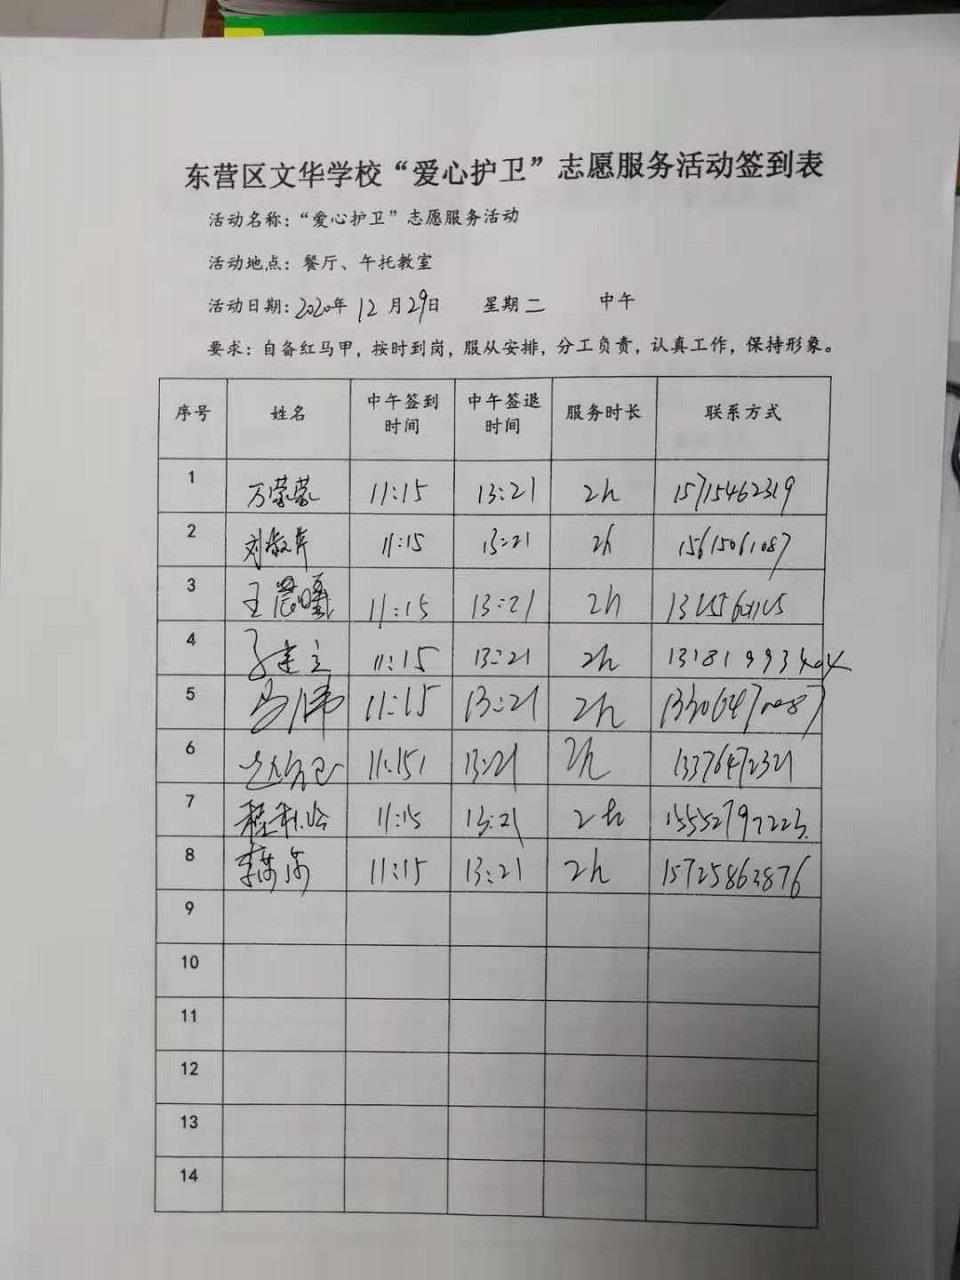 东营区文华学校“爱心护卫”志愿服务活动签到表
活动名称：“爱心护卫”志愿服务活动
活动地点：餐厅、午托教室
活动日期：2020年 12月29日 星期二 中午
要求：自备红马甲，按时到岗，服从安排，分工负责，认真工作，保持形象。
序号 姓名 中午签到时间 中午签退时间 服务时长 联系方式
1 万蒙蒙 11:15 13:21 2h 15715462319
2 11:15 13:21 2h 15615061087
3 王晨曦 11:15 13:21 2h
4 11:15 13:21 2h 13181993404
5 马伟 11:15 13:21 2h 13306470087
6 11:15 13:21 2h 13376472321
7 程秋玲 11:15 13:21 2h 15552797223
8 11:15 13:21 2h 15725863876
9
10
11
12
13
14